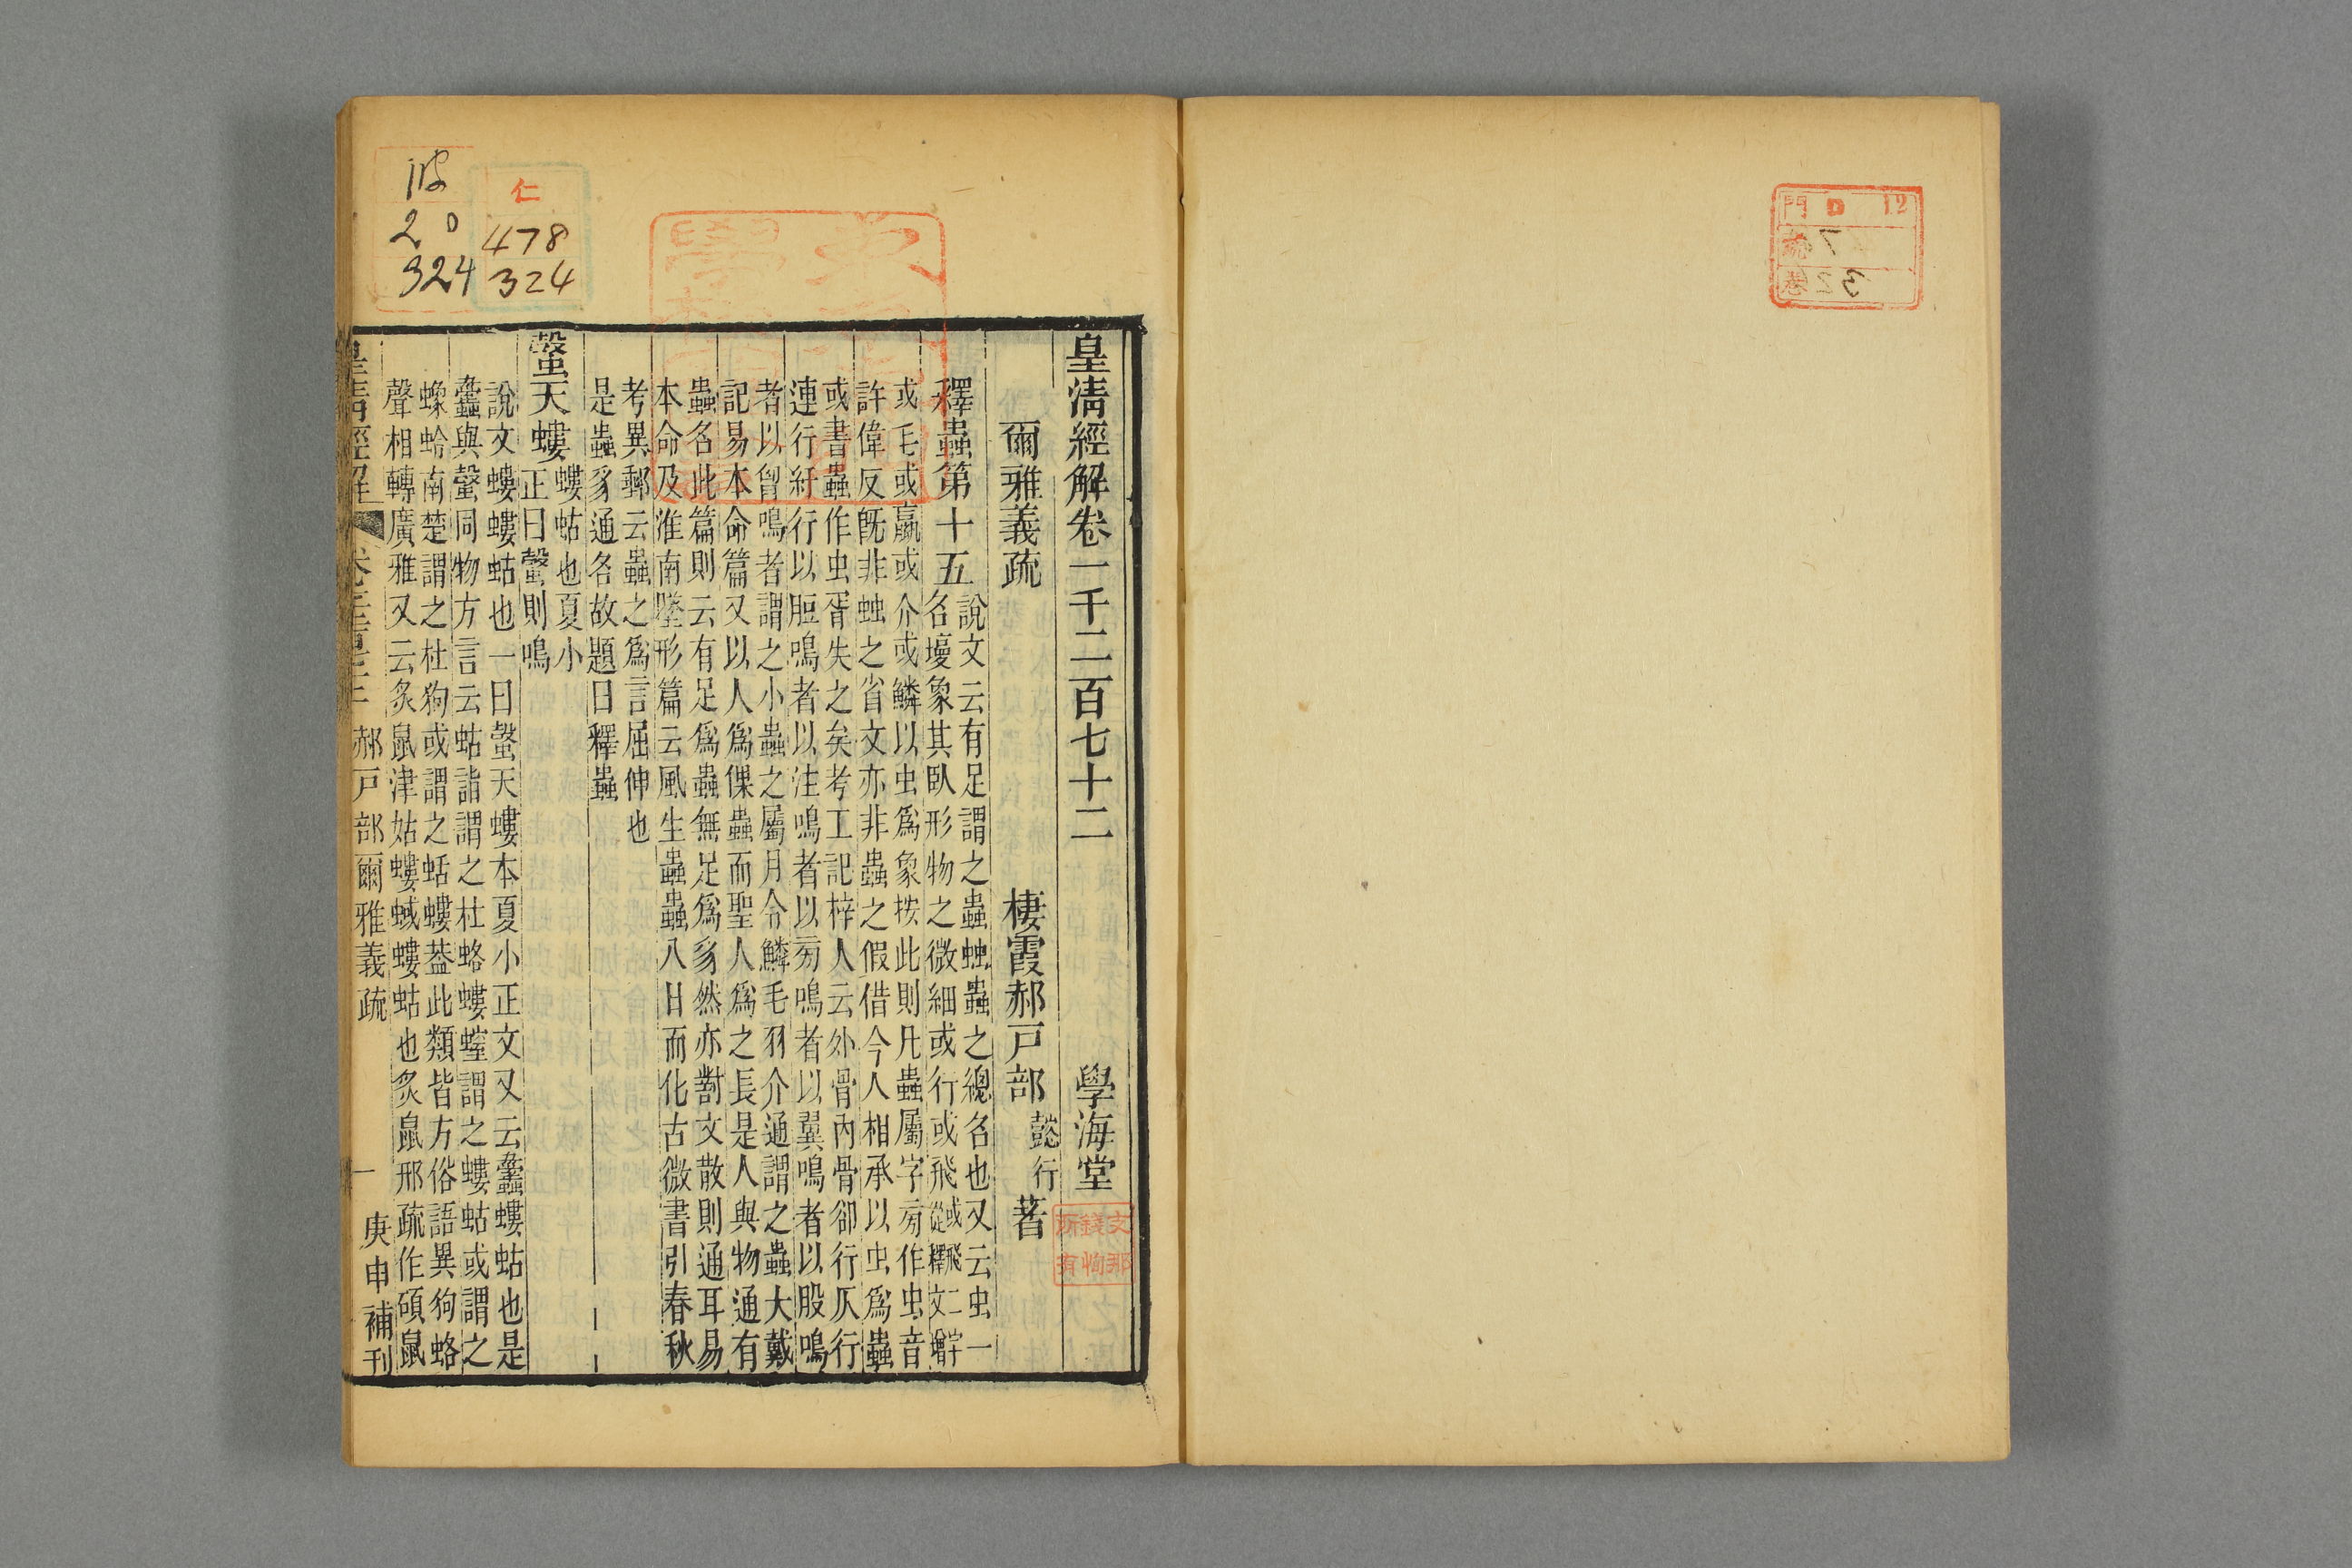 皇清經解卷一千二百七十二 學海堂
爾雅義疏 棲霞郝戸部懿行著
釋蟲第十五
說文云有足謂之蟲䖵蟲之總名也又云虫一
名蝮象其臥形物之微細或行或飛或飛二字從釋文增
或毛或蠃或介或鱗以虫爲象按此則凡蟲屬字㫄作虫音
許偉反旣非䖵之省文亦非蟲之假借今人相承以虫爲蟲
或書蟲作虫胥失之矣考工記梓人云外骨內骨卻行仄行
連行紆行以脰鳴者以注鳴者以㫄鳴者以翼鳴者以股鳴
者以胷鳴者謂之小蟲之屬月令鱗毛羽介通謂之蟲大戴
記易本命篇又以人爲倮蟲而聖人爲之長是人與物通有
蟲名此篇則云有足爲蟲無足爲豸然亦對文散則通耳易
本命及淮南墬形篇云風生蟲蟲八日而化古微書引春秋
考異郵云蟲之爲言屈伸也
是蟲豸通名故題曰釋蟲
螜天螻
螻蛄也夏小
正曰螜則鳴
說文螻螻蛄也一曰螜天螻本夏小正文又云蠹螻蛄也是
蠹與螜同物方言云蛄䗐謂之杜䗂螻螲謂之螻蛄或謂之
蟓蛉南楚謂之杜狗或謂之蛞螻葢此類皆方俗語異狗䗂
聲相轉廣雅又云炙鼠津姑螻蜮螻蛄也炙鼠邢疏作碩鼠
皇清經解 郝戸部爾雅義疏 一 庚申補刊
仁
478
324
20
324
門 D 12
號 7
卷 32